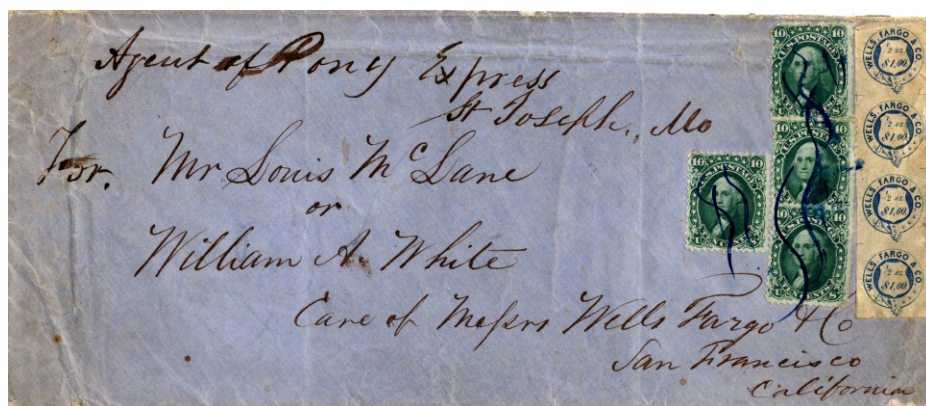 Agent of Pony Express
St Joseph, Mo
For. Mr Louis McLane
or
William A. White
Care of Messrs Wells Fargo & Co
San Francisco
California
10 10
U.S. POSTAGE
10 10
U.S. POSTAGE
10 10
U.S. POSTAGE
10 10
U.S. POSTAGE
WELLS FARGO & CO.
1/2 oz.
$1,00.
WELLS FARGO & CO.
1/2 oz.
$1,00.
WELLS FARGO & CO.
1/2 oz.
$1,00.
WELLS FARGO & CO.
1/2 oz.
$1,00.